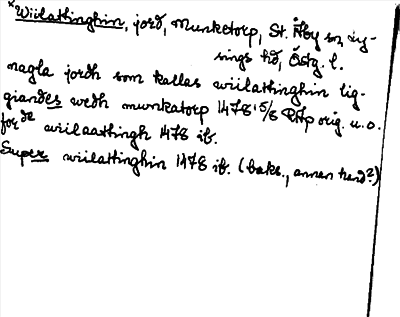 *Wiilattinghin, jord, Munketorp, St. Åby sn, Ly-
sings hd, Östg. l.
nagla jordh som kallas wiilathinghin lig-
giandes wedh munkatorp 1478 15/8 orig. u.o.
for de wiilaattingh 1478 ib.
Super wiilattinghin 1478 ib. (baks., annan hand?)